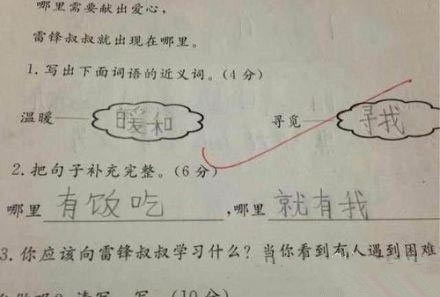 哪里需要献出爱心,
雷锋叔叔就出现在哪里。
1.写出下面词语的近义词。(4分)
温暖 暖和 寻觅 寻找
2.把句子补充完整。(6分)
哪里 有饭吃 ,哪里 就有我
3.你应该向雷锋叔叔学习什么?当你看到有人遇到困难
写一写。(10分)